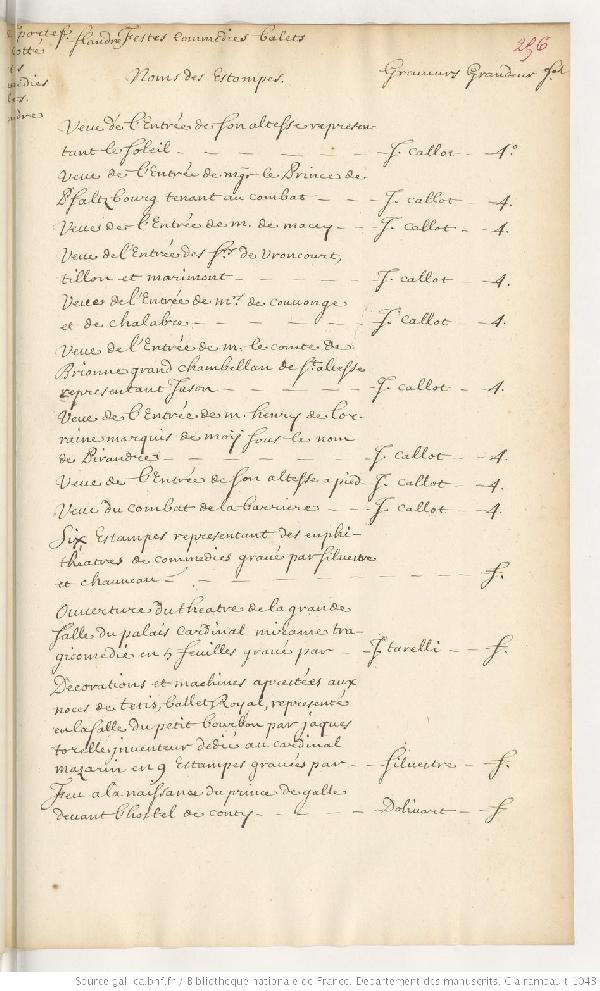 portef. flandre Festes Commedies balets
cotté
256
Noms des Estampes. Graveurs Grandeur
Veue de l'Entrée de son altesse represen
tant le Soleil - - - - - J. callot - 4.º
Veue de l'Entrée de mgr le Prince de
Pfaltzbourg tenant au combat - - J. callot - 4.
Veue de l'Entrée de m. de macey - - J. callot - 4.
Veue de l'Entrée des srs de Vroncourt,
tillon et marimont - - - - J. callot - 4.
Veues de l'Entrée de mrs de couuonge
et de chalabre - - - - - J. callot - 4.
Veue de l'Entrée de m. le comte de
Brionne grand chambellan de st. altesse
representant Jason - - - - J. callot - 4.
Veue de l'Entrée de m. henry de lor-
raine marquis de moij sous le nom
de Pirandre - - - - - J. callot - 4.
Veue de l'Entrée de son altesse a pied J. callot - 4.
Veue du combat de la barriere - - J. callot - 4.
Six Estampes representant des enphi-
théatres de commedies gravé par silvestre
et chauveau - - - - - - - f.
Ouverture du theatre de la grande
salle du palais cardinal mirame tra-
gicomedie en 5 feuilles gravé par - J. tarelli - - f.
Decorations et machines aprestées aux
noces de tetis, ballet Royal, representé
en la salle du petit bourbon par jaques
torelle inventeur dedié au cardinal
mazarin en 9 Estampes gravées par - - silvestre - f.
Feu a la naissance du prince de galle
devant l'hostel de conty - - - - Dolivart - f
Source gallica.bnf.fr / Bibliothèque nationale de France. Département des manuscrits. Clairambault 1043